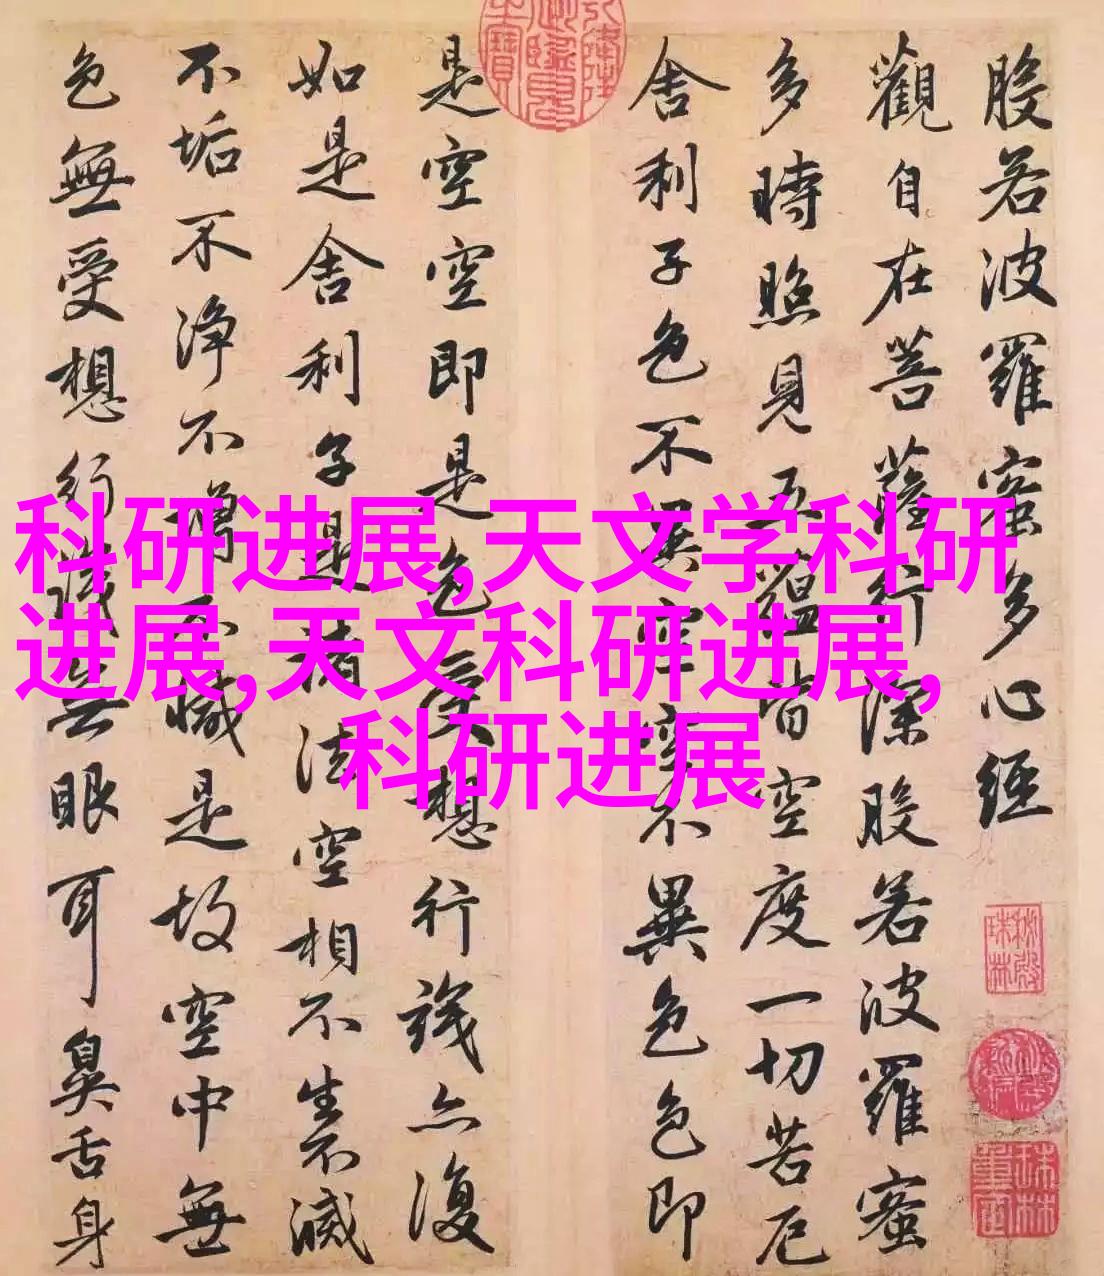 般若波羅蜜多心經
觀自在菩薩行深般若波羅蜜
多時照見五蘊皆空度一切苦厄
舍利子色不異空空不異色色即
是空空即是色受想行識亦復
如是舍利子是諸法空相不生不滅
不垢不淨不增不減是故空中無
色無受想行識无眼耳鼻舌身
秘殿珠林
科研进展,天文学科研
进展,天文科研进展,
科研进展